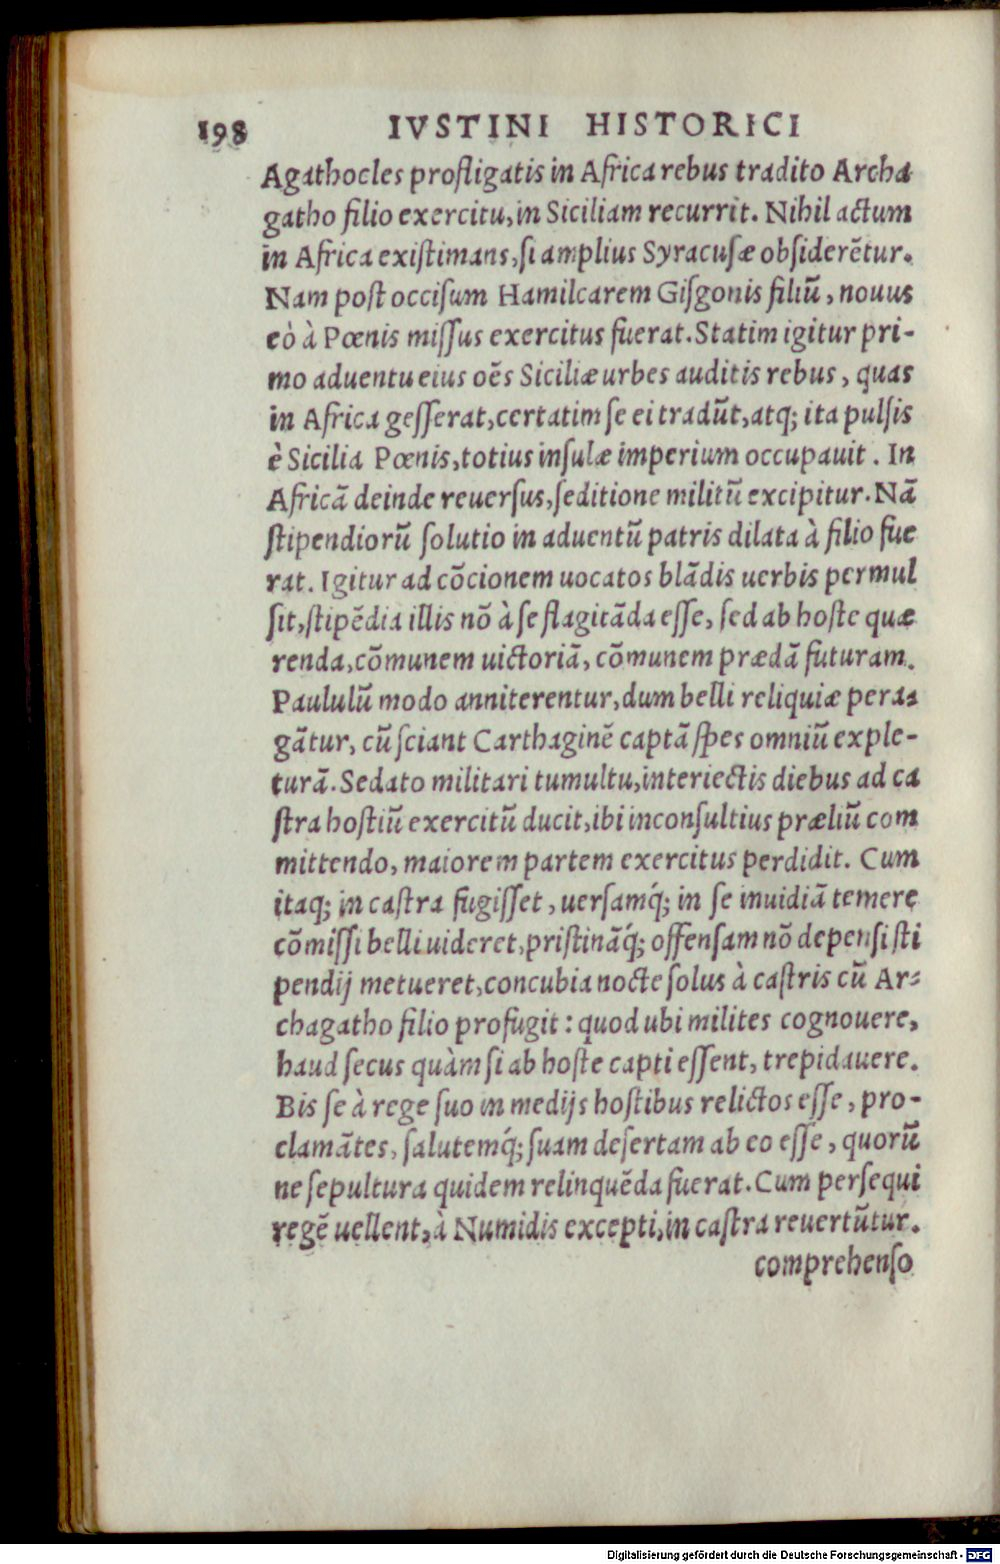 198 IVSTINI HISTORICI
Agathocles profligatis in Africa rebus tradito Archa
gatho filio exercitu, in Siciliam recurrit. Nihil actum
in Africa existimans, si amplius Syracusæ obsiderẽtur.
Nam post occisum Hamilcarem Gisgonis filiũ, nouus
eò à Pœnis missus exercitus fuerat. Statim igitur pri-
mo aduentu eius oẽs Siciliæ urbes auditis rebus, quas
in Africa gesserat, certatim se ei tradũt, atq; ita pulsis
è Sicilia Pœnis, totius insulæ imperium occupauit. In
Africã deinde reuersus, seditione militũ excipitur. Nã
stipendiorũ solutio in aduentũ patris dilata à filio fue
rat. Igitur ad cõcionem uocatos blãdis uerbis permul
sit, stipẽdia illis nõ à se flagitãda esse, sed ab hoste quæ
renda, cõmunem uictoriã, cõmunem prædã futuram.
Paululũ modo anniterentur, dum belli reliquiæ pera-
gãtur, cũ sciant Carthaginẽ captã spes omniũ exple-
turã. Sedato militari tumultu, interiectis diebus ad ca
stra hostiũ exercitũ ducit, ibi inconsultius præliũ com
mittendo, maiorem partem exercitus perdidit. Cum
itaq; in castra fugisset, uersamq́; in se inuidiã temere
cõmissi belli uideret, pristinãq́; offensam nõ depensi sti
pendij metueret, concubia nocte solus à castris cũ Ar-
chagatho filio profugit: quod ubi milites cognouere,
haud secus quàm si ab hoste capti essent, trepidauere.
Bis se à rege suo in medijs hostibus relictos esse, pro-
clamãtes, salutemq́; suam desertam ab eo esse, quorũ
ne sepultura quidem relinquẽda fuerat. Cum persequi
regẽ uellent, à Numidis excepti, in castra reuertũtur.
comprehenso
Digitalisierung gefördert durch die Deutsche Forschungsgemeinschaft - DFG